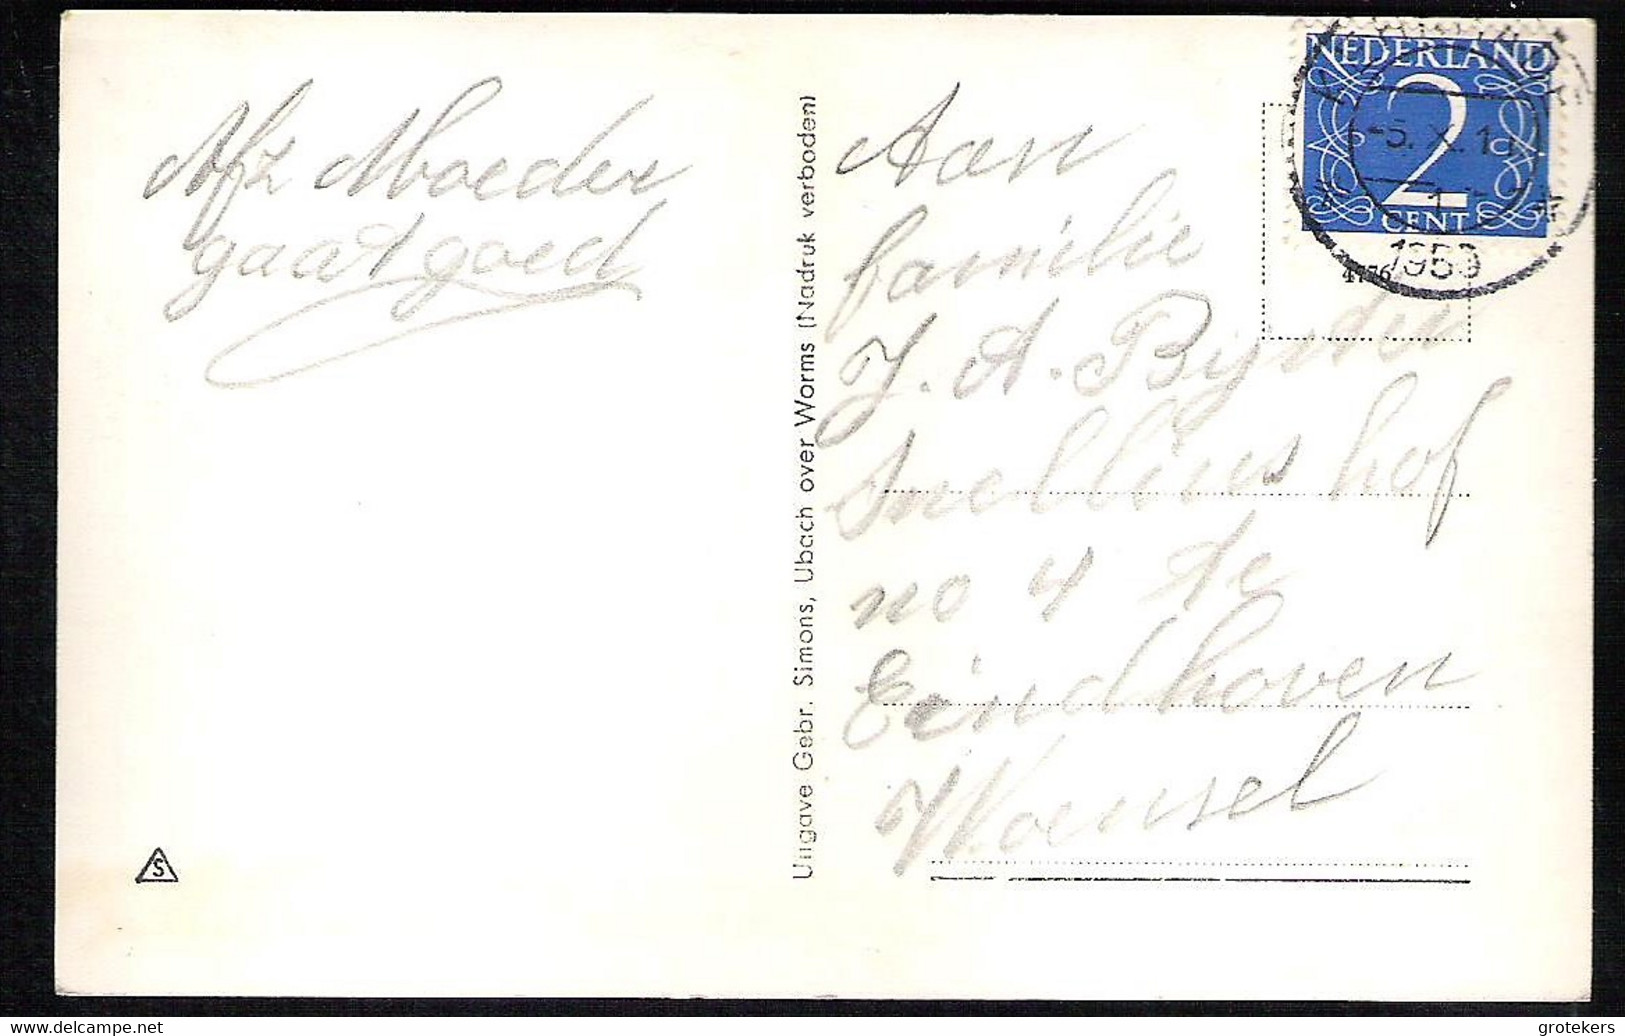 Afz Moeder
gaat goed
S
Uitgave Gebr. Simons, Ubach over Worms (Nadruk verboden)
NEDERLAND
2
CENT
-5. X. 1
1959
4776
Aan
familie
J. A. Byster
Snellius hof
no 4 te
Eindhoven
Woensel
www.delcampe.net
grotekers